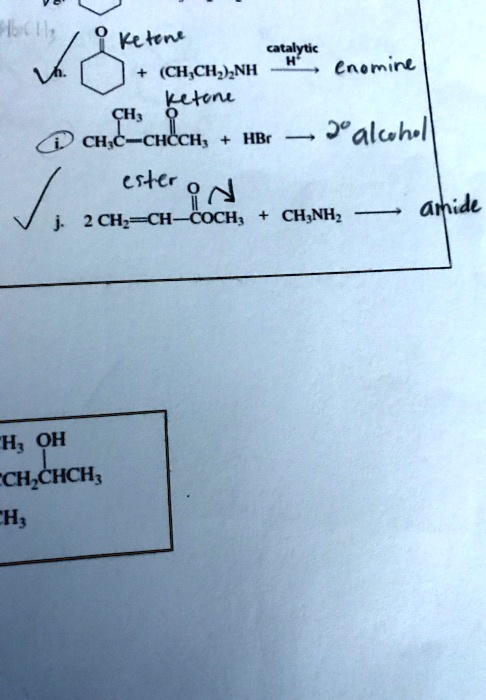 O Ketone
h. + (CH₃CH₂)₂NH catalytic H⁺ ⟶ enomine
ketone
CH₃ O
i. CH₃C=CHCCH₃ + HBr ⟶ 2° alcohol
ester O N
j. 2 CH₂=CH—COCH₃ + CH₃NH₂ ⟶ amide
H₃ OH
CH₂CHCH₃
H₃